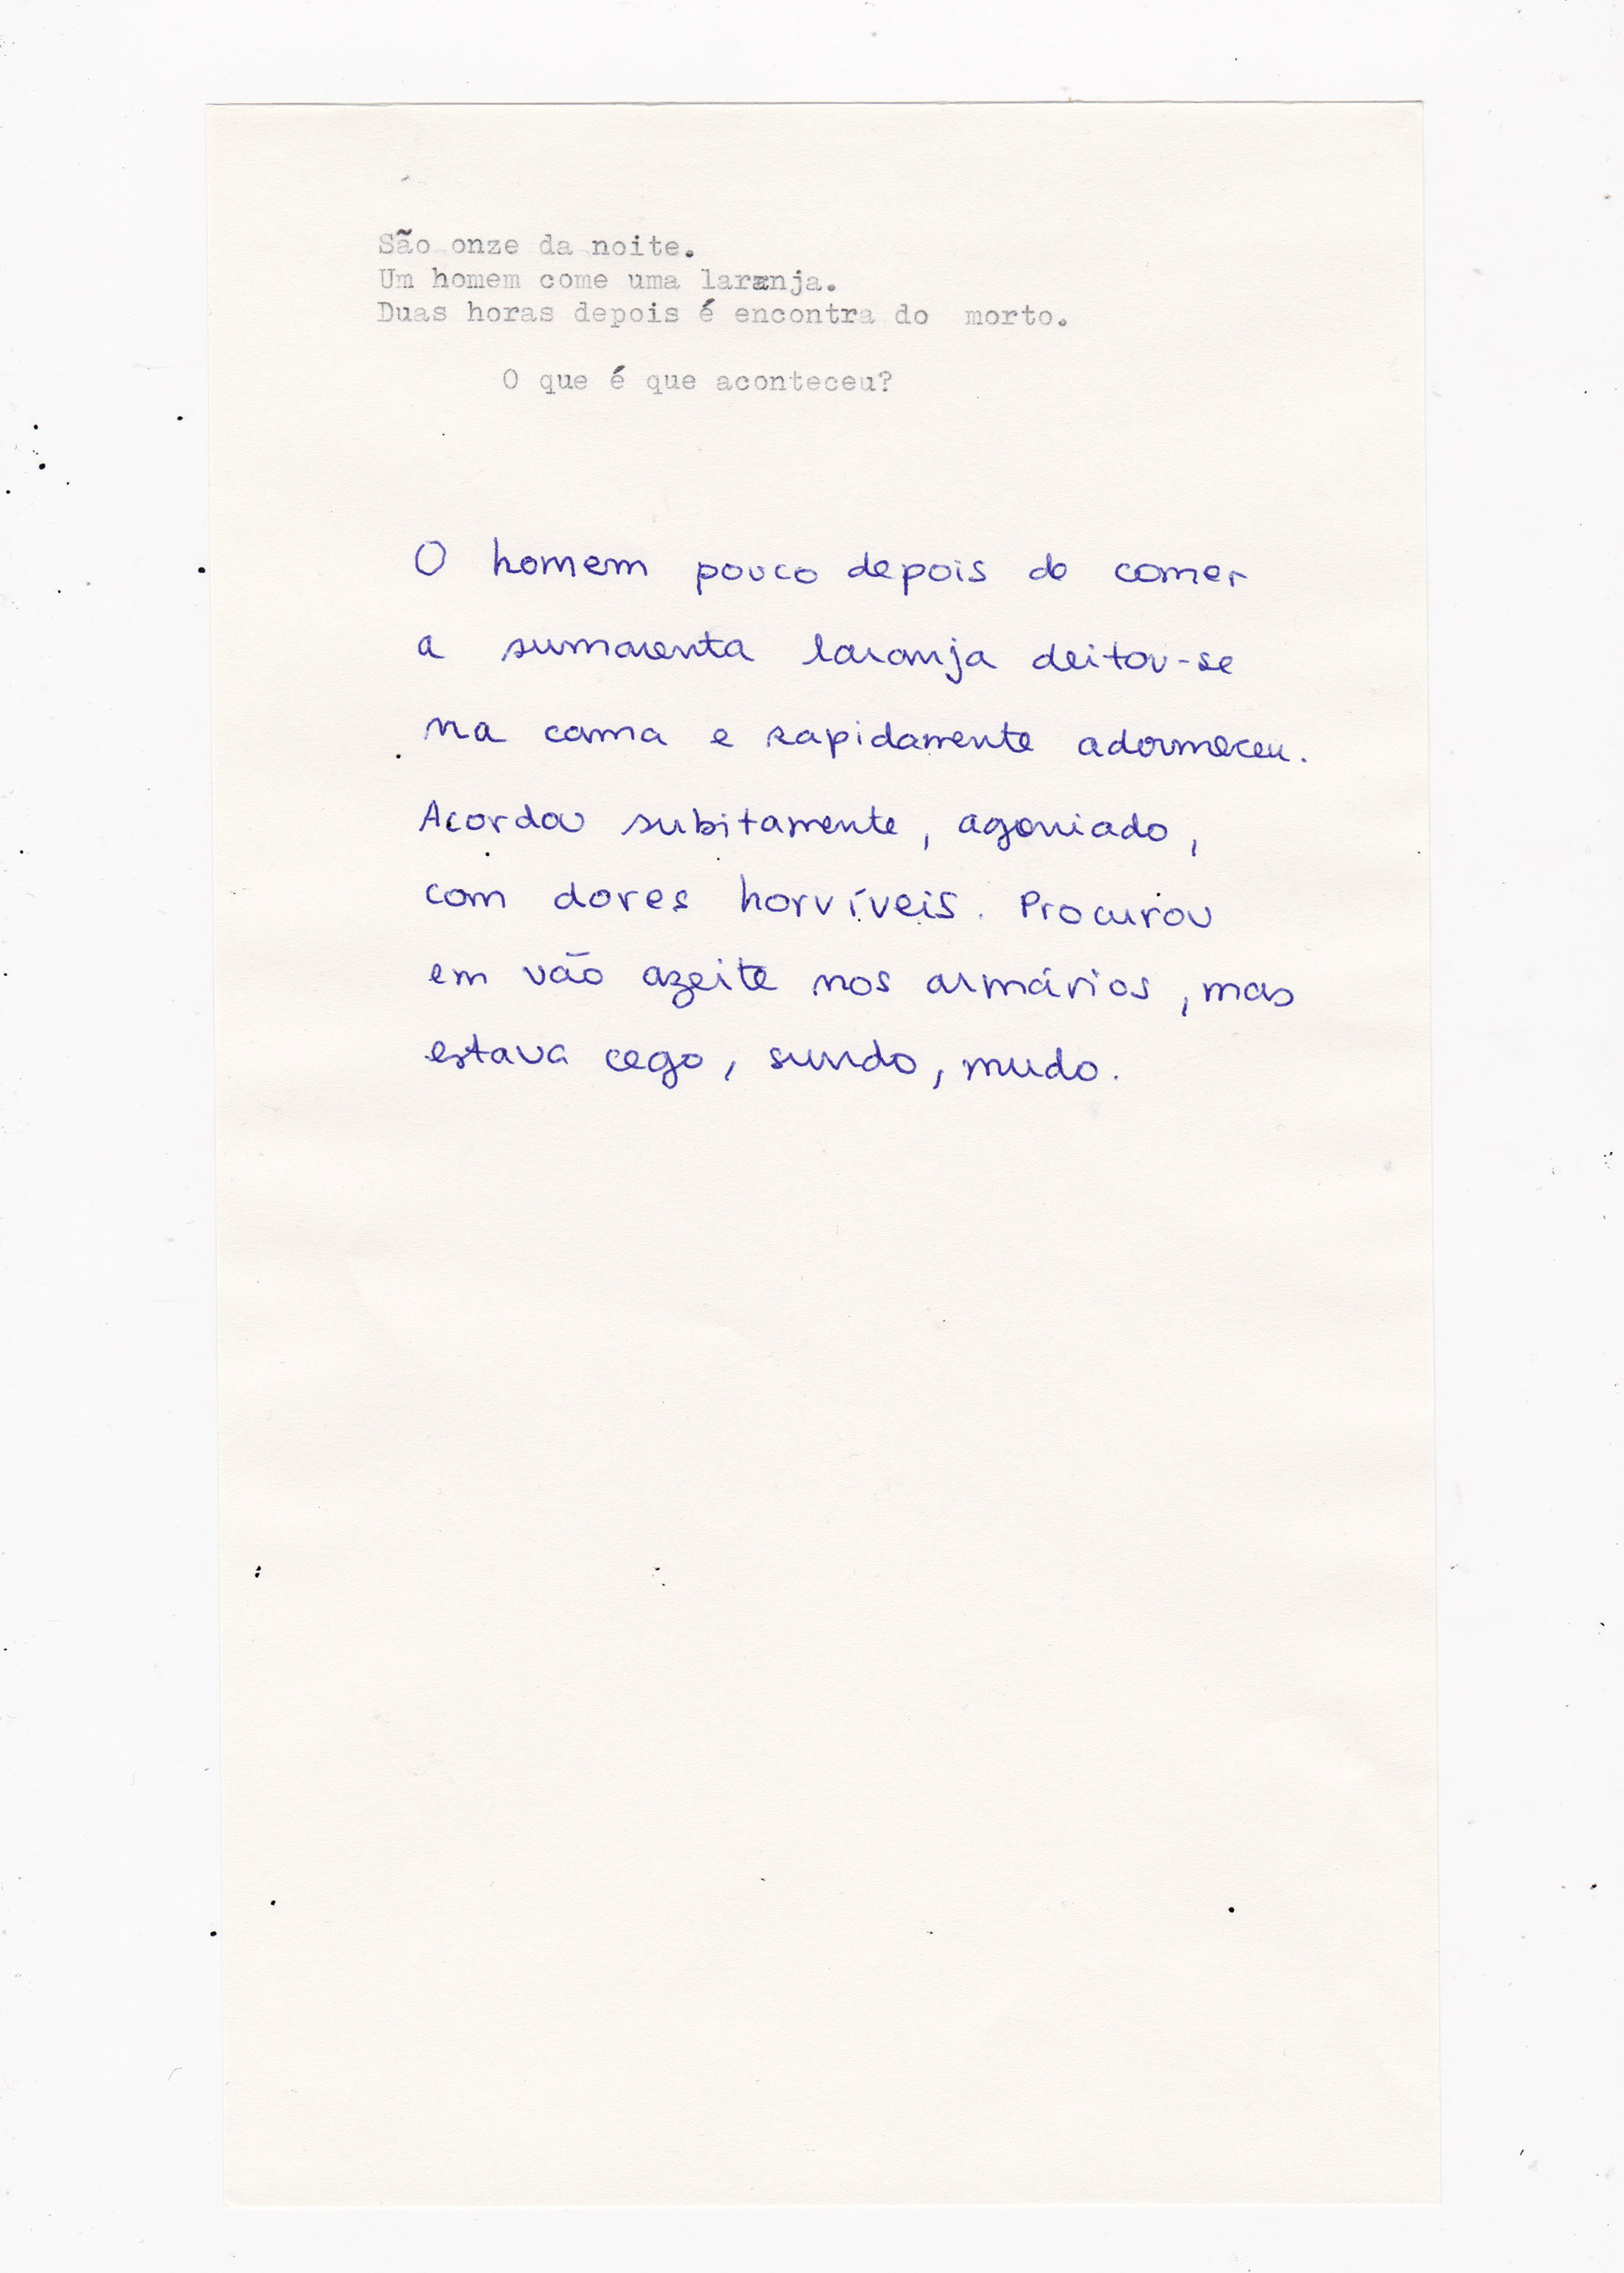 São onze da noite.
Um homem come uma laranja.
Duas horas depois é encontra do morto.
O que é que aconteceu?
O homem pouco depois de comer
a sumarenta laranja deitou-se
na cama e rapidamente adormeceu.
Acordou subitamente, agoniado,
com dores horríveis. Procurou
em vão azeite nos armários, mas
estava cego, surdo, mudo.